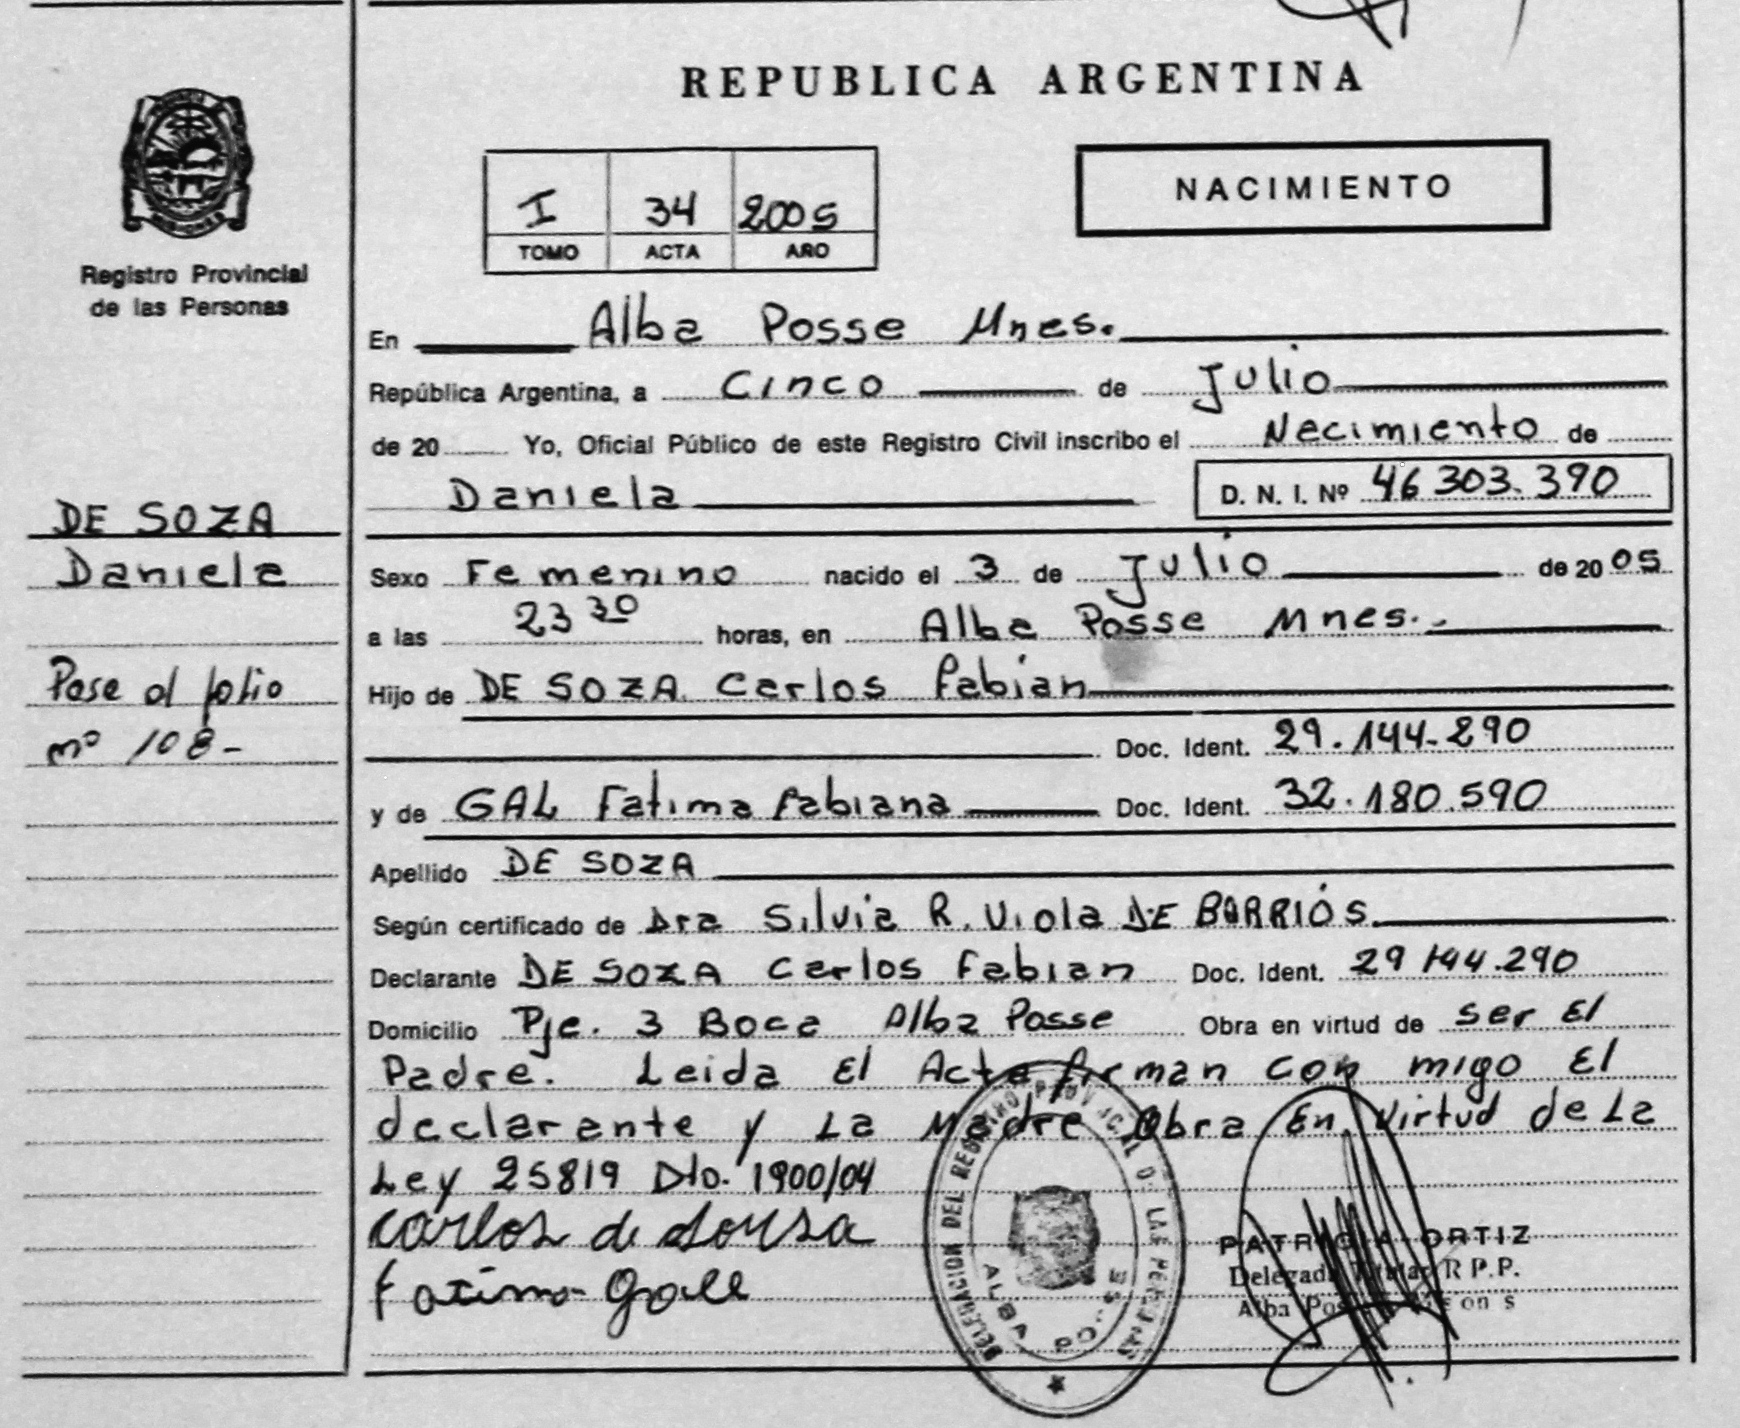 REPUBLICA ARGENTINA
NACIMIENTO
I 34 2005
TOMO ACTA AÑO
Registro Provincial
de las Personas
En Alba Posse Mnes.
República Argentina, a Cinco de Julio
de 20 Yo, Oficial Público de este Registro Civil inscribo el Necimiento de
Daniela D. N. I. Nº 46 303. 390
DE SOZA
Daniela
Pase al folio
nº 108-
Sexo Femenino nacido el 3 de Julio de 20 05
a las 23 30 horas, en Alba Posse Mnes.
Hijo de DE SOZA. Carlos Fabian
Doc. Ident. 29.144-290
y de GAL Fatima Fabiana Doc. Ident. 32.180.590
Apellido DE SOZA
Según certificado de Dra Silvia R. Viola DE BARRIOS
Declarante DE SOZA Carlos Fabian Doc. Ident. 29 144.290
Domicilio Pje. 3 Boca Alba Posse Obra en virtud de ser El
Padre. Leida El Acta firman con migo El
declarante y La Madre Obra En Virtud de La
Ley 25819 Dto. 1900/04
Carlos de Sousa
Fatima Gall
DELEGACION DEL REGISTRO PROVINCIAL DE LAS PERSONAS
ALBA POSSE
PATRICIA ORTIZ
Delegada Titular R P.P.
Alba Posse